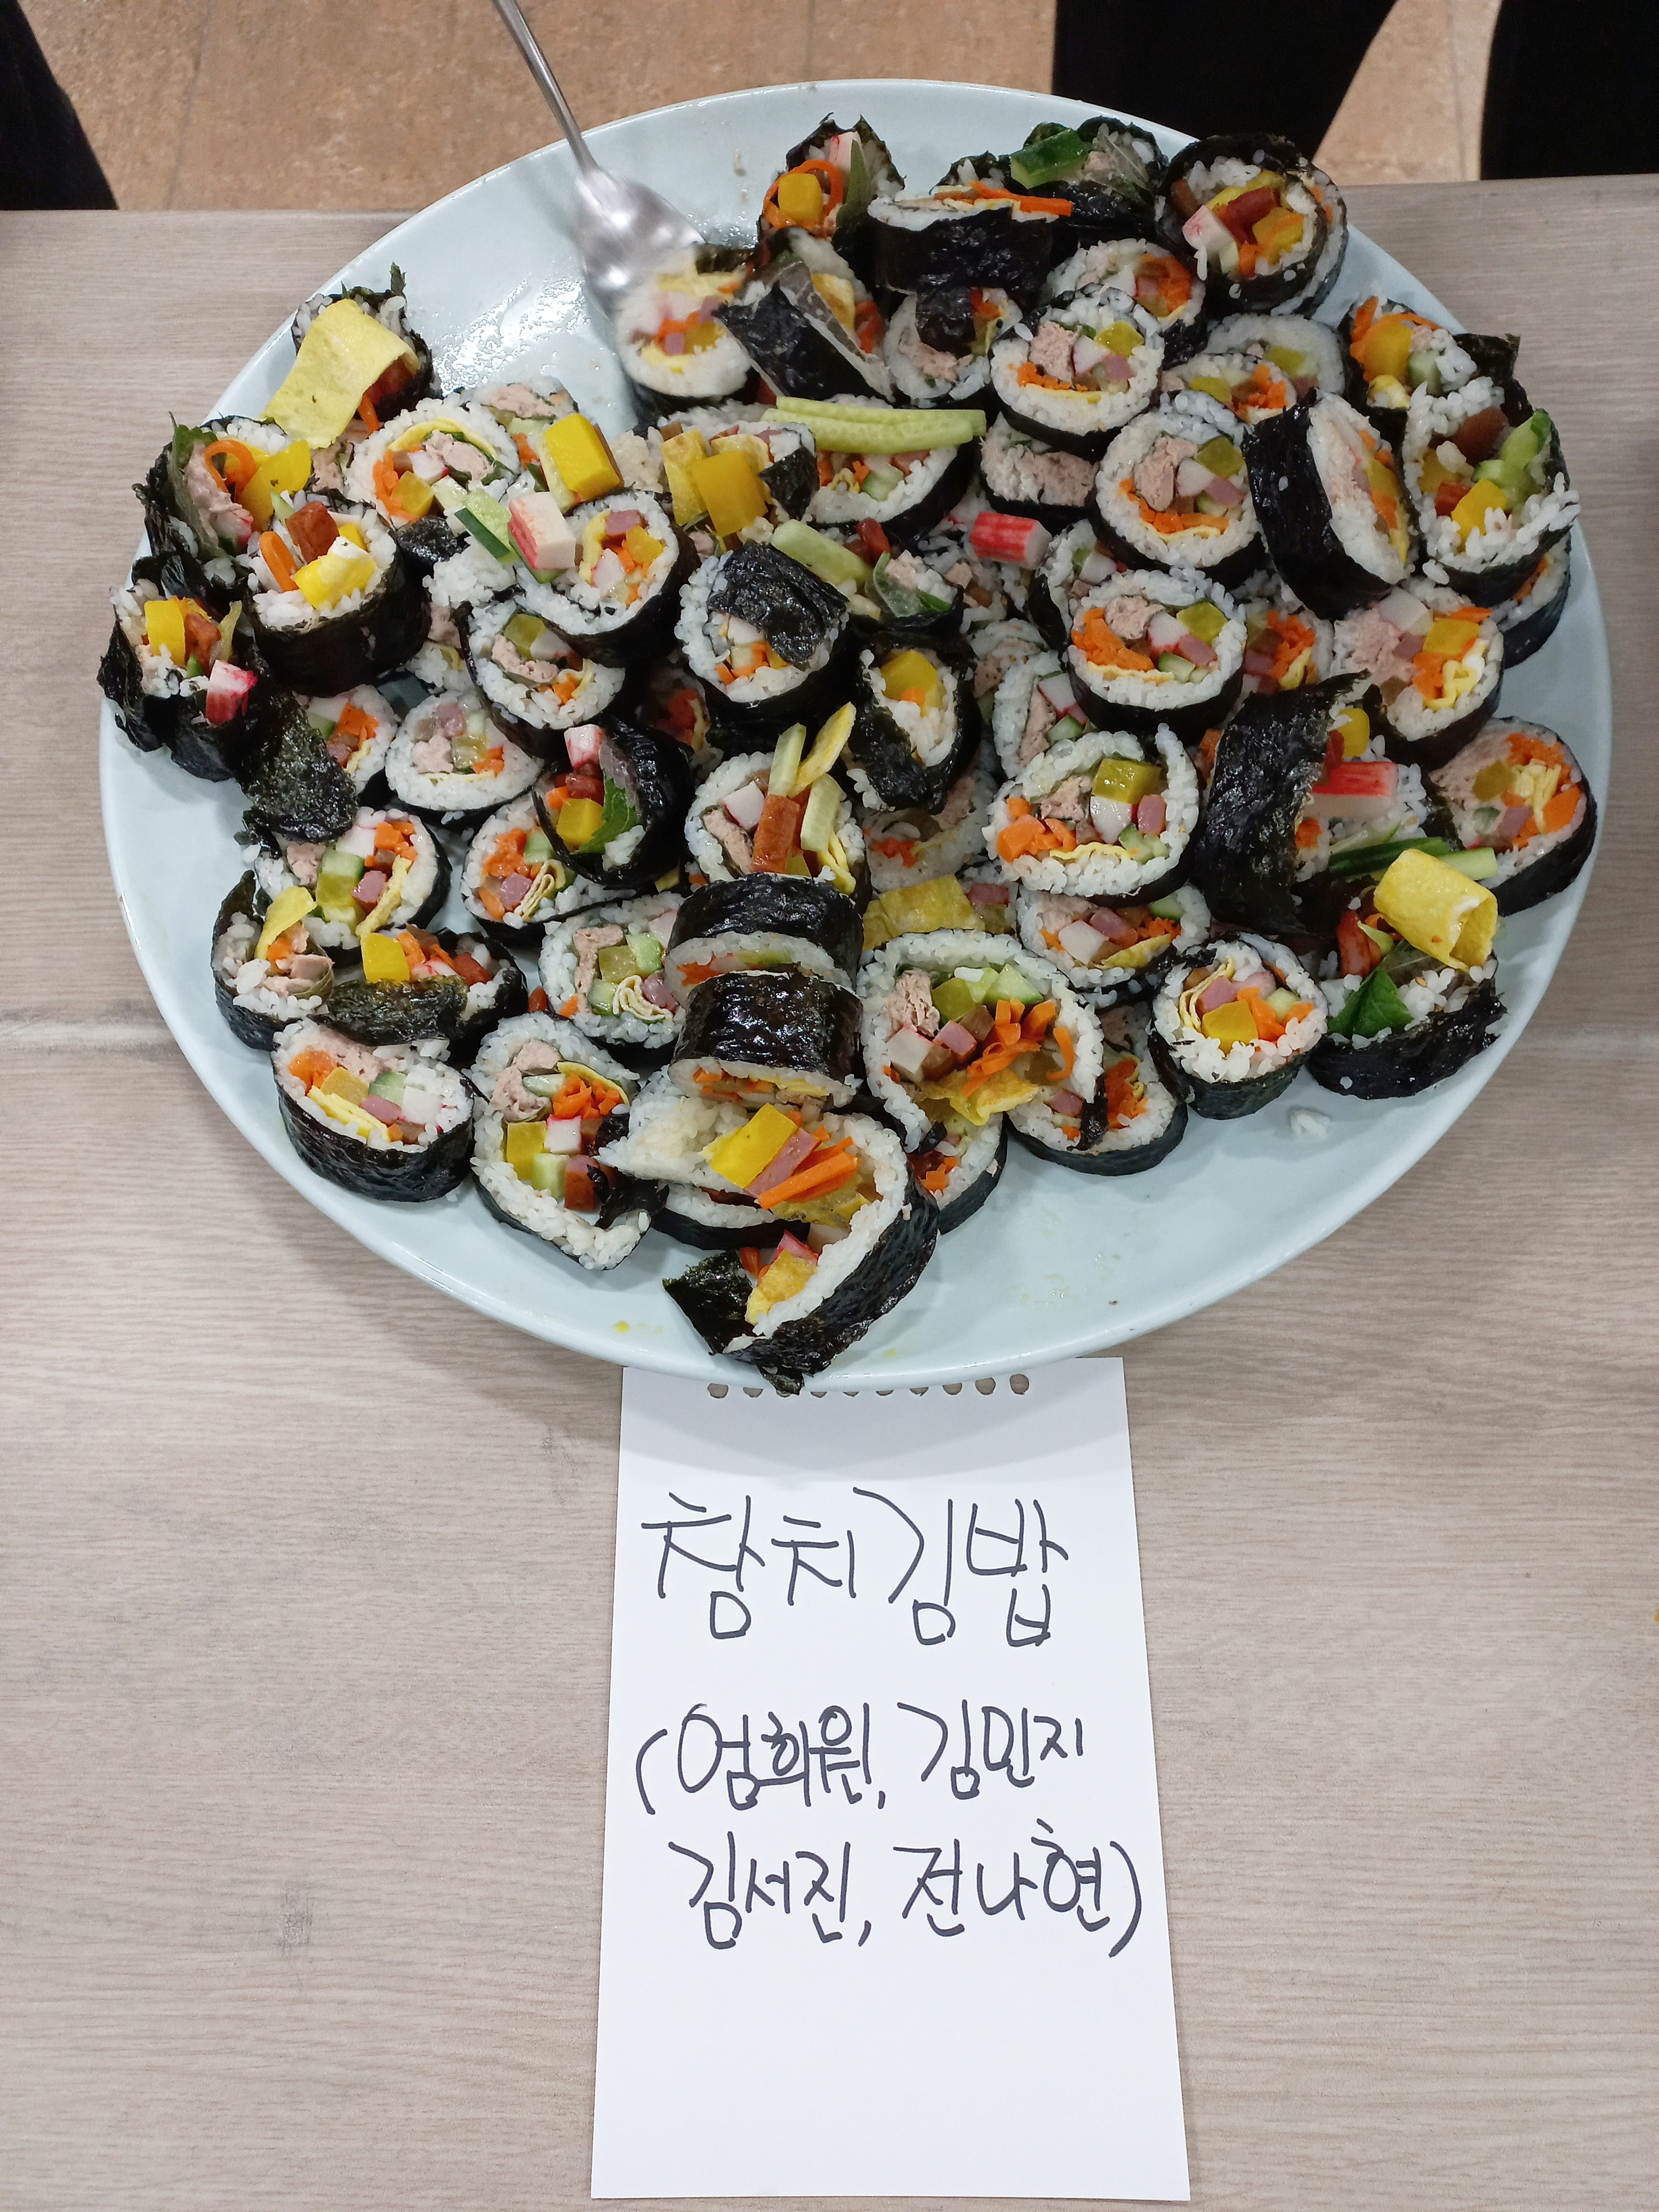 참치김밥
(엄희원, 김민지
김서진, 전나현)